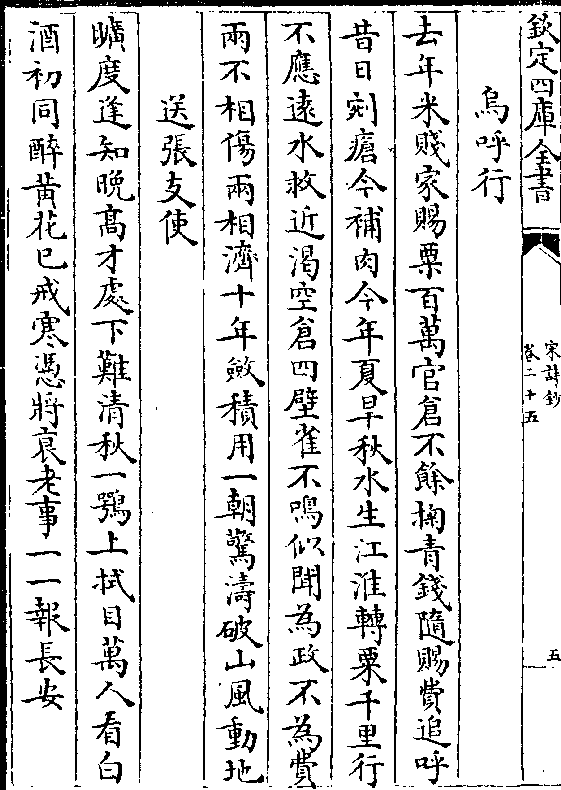 欽定四庫全書
宋詩鈔
卷二十五
五
烏呼行
去年米賤家賜粟百萬官倉不餘掬青錢隨賜費追呼
昔日剜瘡今補肉今年夏旱秋水生江淮轉粟千里行
不應逺水救近渴空倉四壁雀不鳴似聞為政不為費
兩不相傷兩相濟十年斂積用一朝驚濤破山風動地
送張支使
曠度逢知晩髙才處下難清秋一鶚上拭目萬人看白
酒初同醉黄花已戒寒憑將衰老事一一報長安